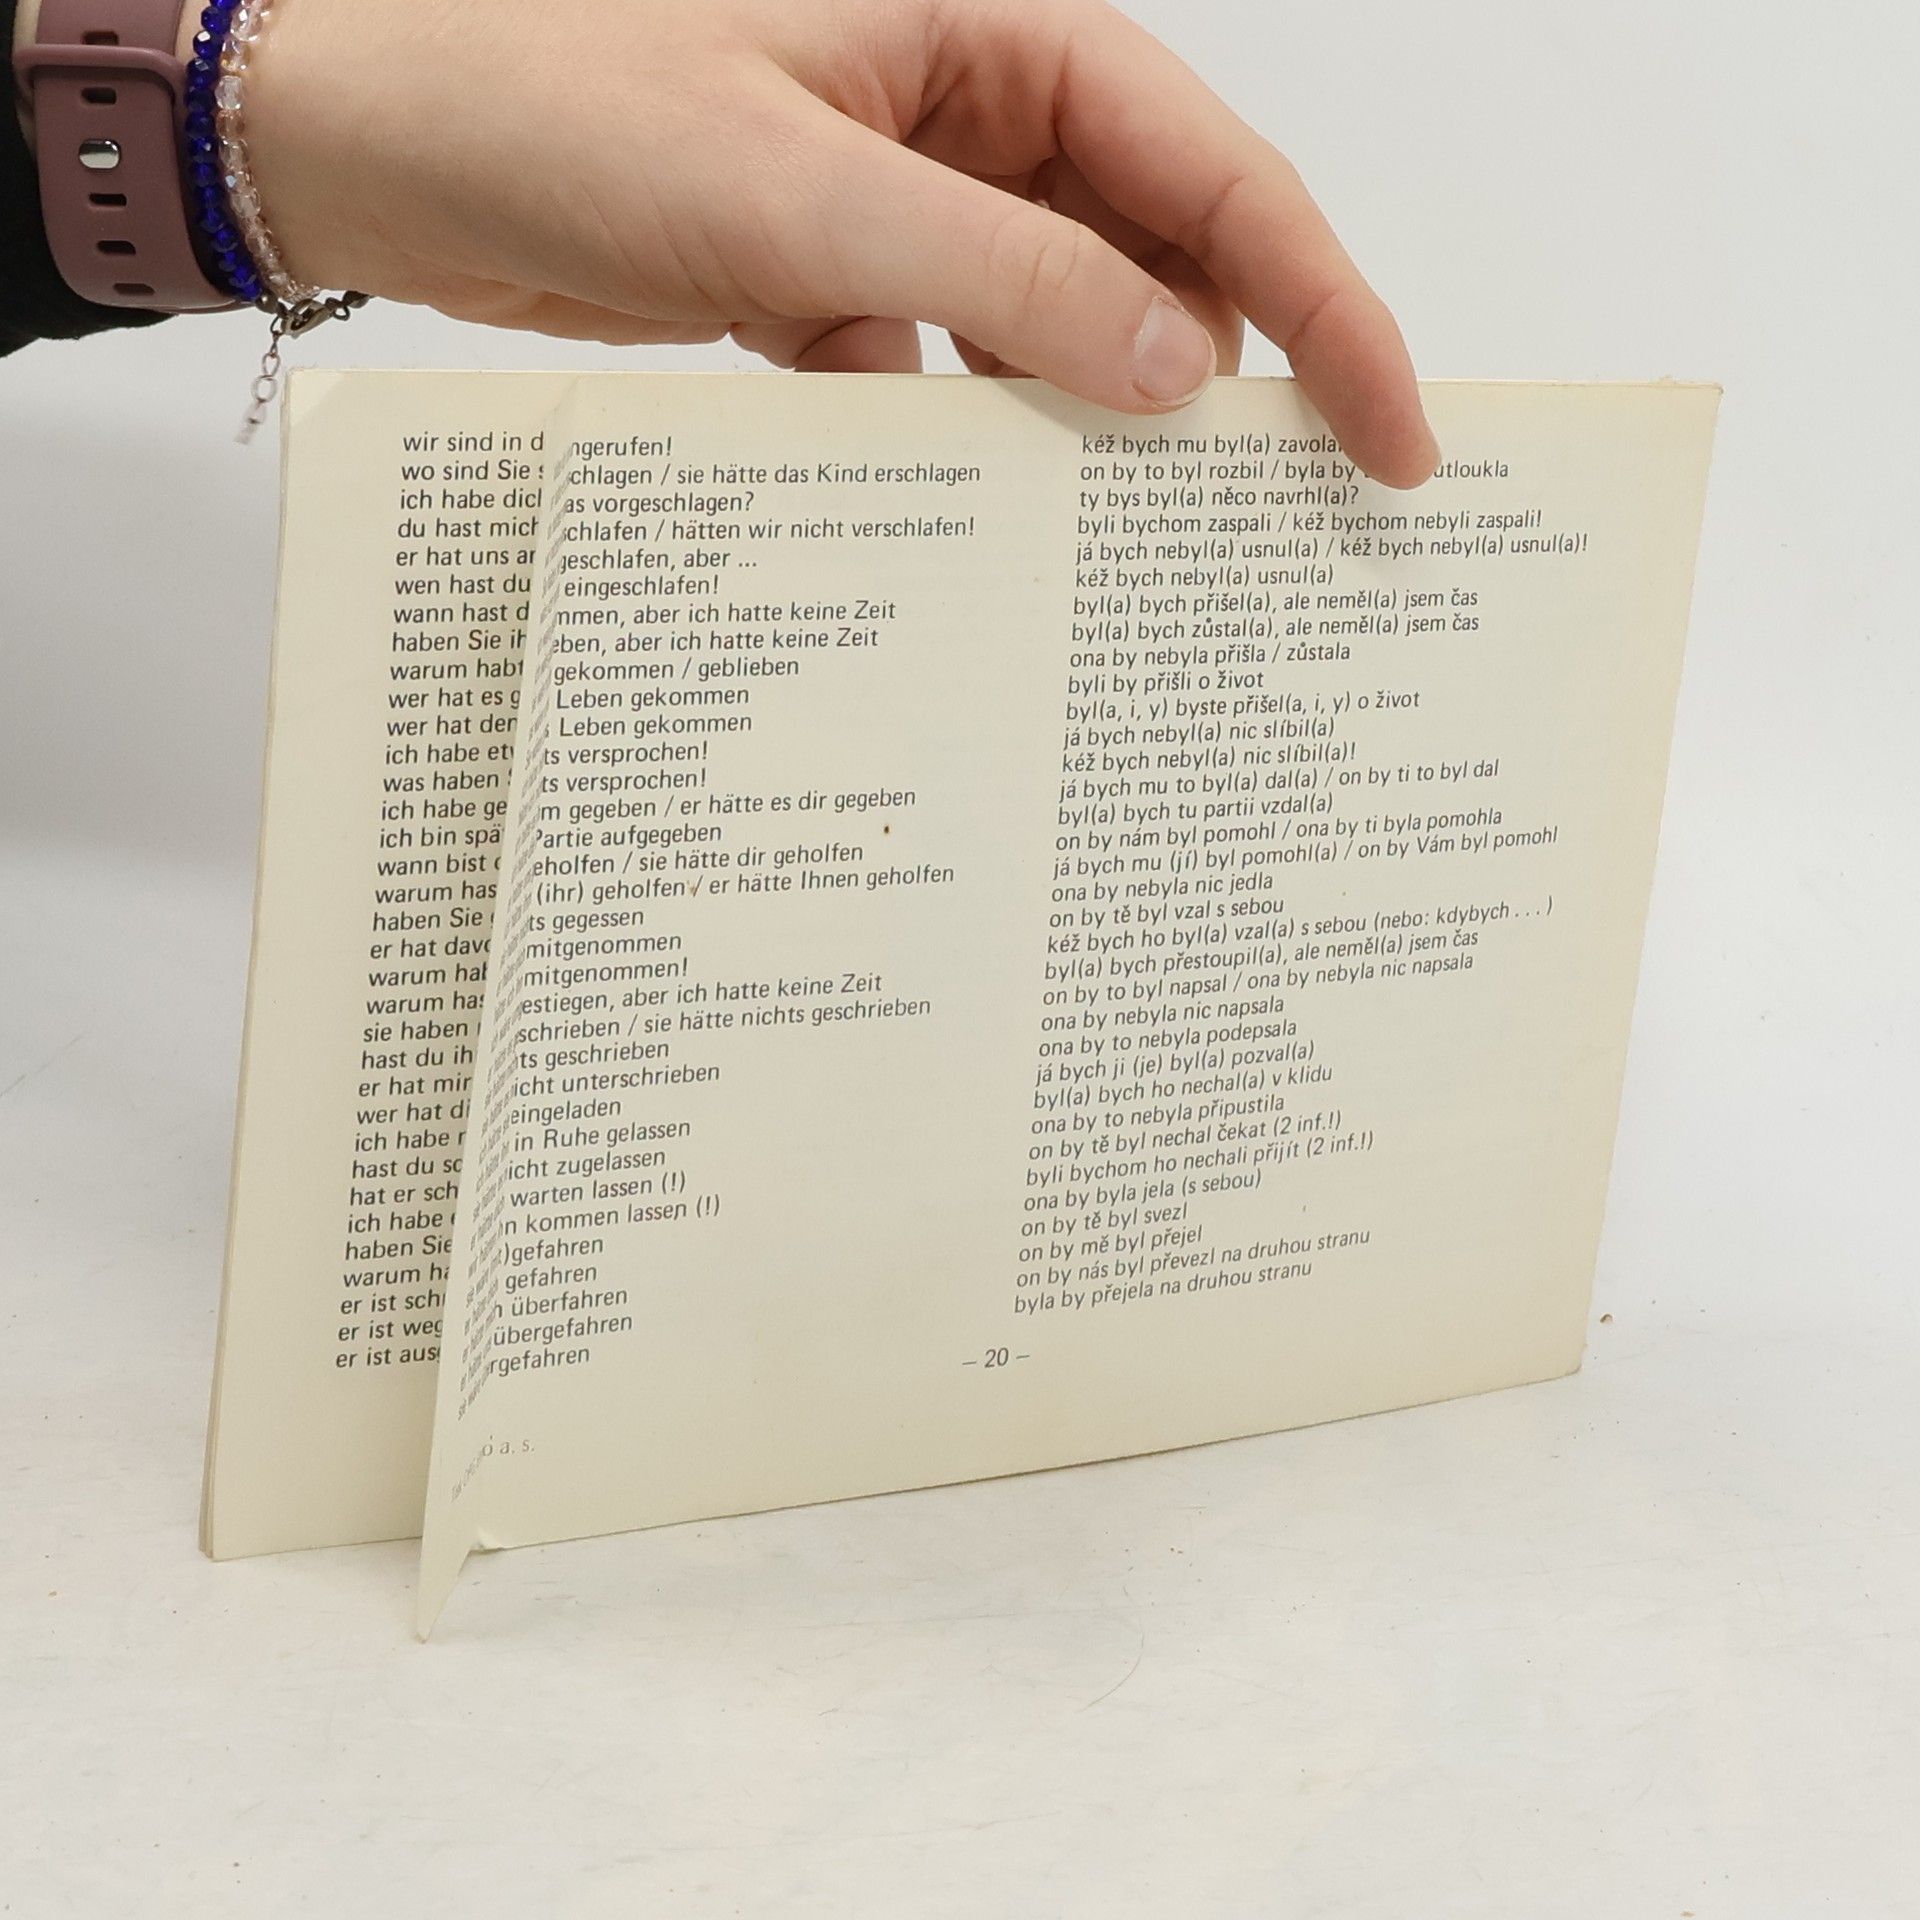 wir sind in d
wo sind Sie
ich habe dich
du hast mich
er hat uns
wen hast du
wann hast d
haben Sie ih
warum habt
wer hat es g
wer hat den
ich habe
was haben
ich habe ge
ich bin spä
wann bist
warum has
haben Sie
er hat davo
warum hab
warum has
sie haben
hast du ih
er hat mir
wer hat di
ich habe
hast du sc
hat er sch
ich habe
haben Sie
warum ha
er ist sch
er ist weg
er ist aus
ngerufen!
chlagen / sie hätte das Kind erschlagen
as vorgeschlagen?
schlafen / hätten wir nicht verschlafen!
geschlafen, aber ...
eingeschlafen!
mmen, aber ich hatte keine Zeit
eben, aber ich hatte keine Zeit
gekommen / geblieben
Leben gekommen
Leben gekommen
ts versprochen!
ts versprochen!
m gegeben / er hätte es dir gegeben
Partie aufgegeben
eholfen / sie hätte dir geholfen
(ihr) geholfen / er hätte Ihnen geholfen
ts gegessen
mitgenommen
mitgenommen!
estiegen, aber ich hatte keine Zeit
schrieben / sie hätte nichts geschrieben
ts geschrieben
icht unterschrieben
eingeladen
in Ruhe gelassen
icht zugelassen
warten lassen (!)
n kommen lassen (!)
)gefahren
gefahren
h überfahren
übergefahren
rgefahren
a. s.
kéž bych mu byl(a) zavola
on by to byl rozbil / byla by utloukla
ty bys byl(a) něco navrhl(a)?
byli bychom zaspali / kéž bychom nebyli zaspali!
já bych nebyl(a) usnul(a) / kéž bych nebyl(a) usnul(a)!
kéž bych nebyl(a) usnul(a)
byl(a) bych přišel(a), ale neměl(a) jsem čas
byl(a) bych zůstal(a), ale neměl(a) jsem čas
ona by nebyla přišla / zůstala
byli by přišli o život
byl(a, i, y) byste přišel(a, i, y) o život
já bych nebyl(a) nic slíbil(a)
kéž bych nebyl(a) nic slíbil(a)!
já bych mu to byl(a) dal(a) / on by ti to byl dal
byl(a) bych tu partii vzdal(a)
on by nám byl pomohl / ona by ti byla pomohla
já bych mu (jí) byl pomohl(a) / on by Vám byl pomohl
ona by nebyla nic jedla
on by tě byl vzal s sebou
kéž bych ho byl(a) vzal(a) s sebou (nebo: kdybych . . . )
byl(a) bych přestoupil(a), ale neměl(a) jsem čas
on by to byl napsal / ona by nebyla nic napsala
ona by nebyla nic napsala
ona by to nebyla podepsala
já bych ji (je) byl(a) pozval(a)
byl(a) bych ho nechal(a) v klidu
ona by to nebyla připustila
on by tě byl nechal čekat (2 inf.!)
byli bychom ho nechali přijít (2 inf.!)
ona by byla jela (s sebou)
on by tě byl svezl
on by mě byl přejel
on by nás byl převezl na druhou stranu
byla by přejela na druhou stranu
– 20 –